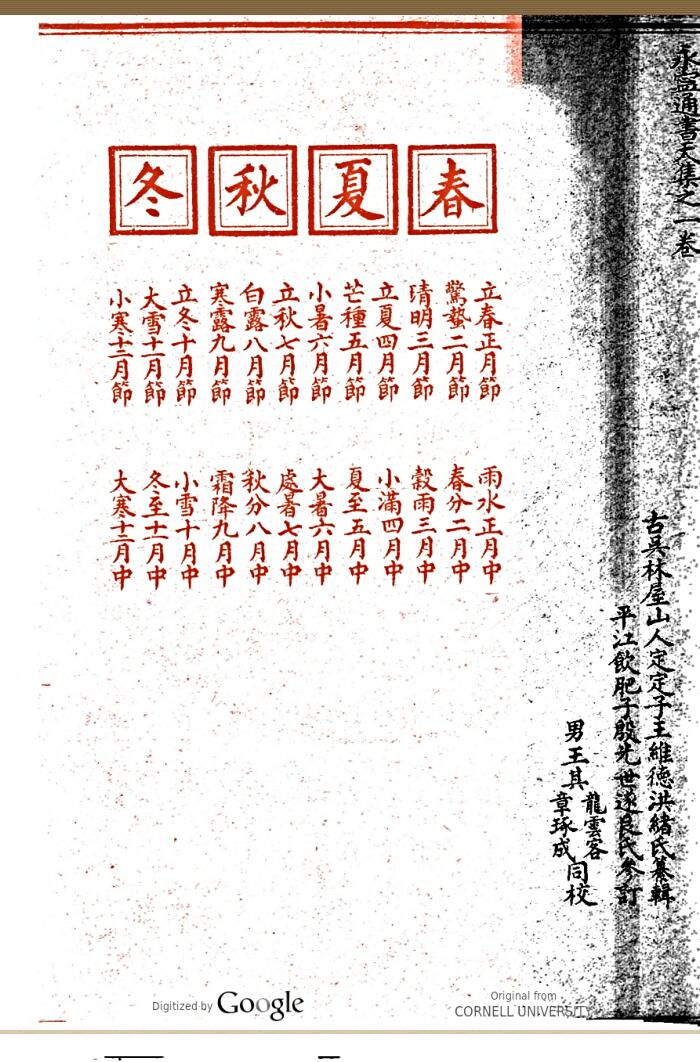 永寧通書天集之一卷
古吳林屋山人定定子王維德洪緒氏纂輯
平江飲肥子殷光世遂良氏參訂
男王其
龍雲客
章琢成
同校
春
夏
秋
冬
立春正月節
驚蟄二月節
清明三月節
立夏四月節
芒種五月節
小暑六月節
立秋七月節
白露八月節
寒露九月節
立冬十月節
大雪十一月節
小寒十二月節
雨水正月中
春分二月中
穀雨三月中
小滿四月中
夏至五月中
大暑六月中
處暑七月中
秋分八月中
霜降九月中
小雪十月中
冬至十一月中
大寒十二月中
Digitized by Google
Original from
CORNELL UNIVERSITY